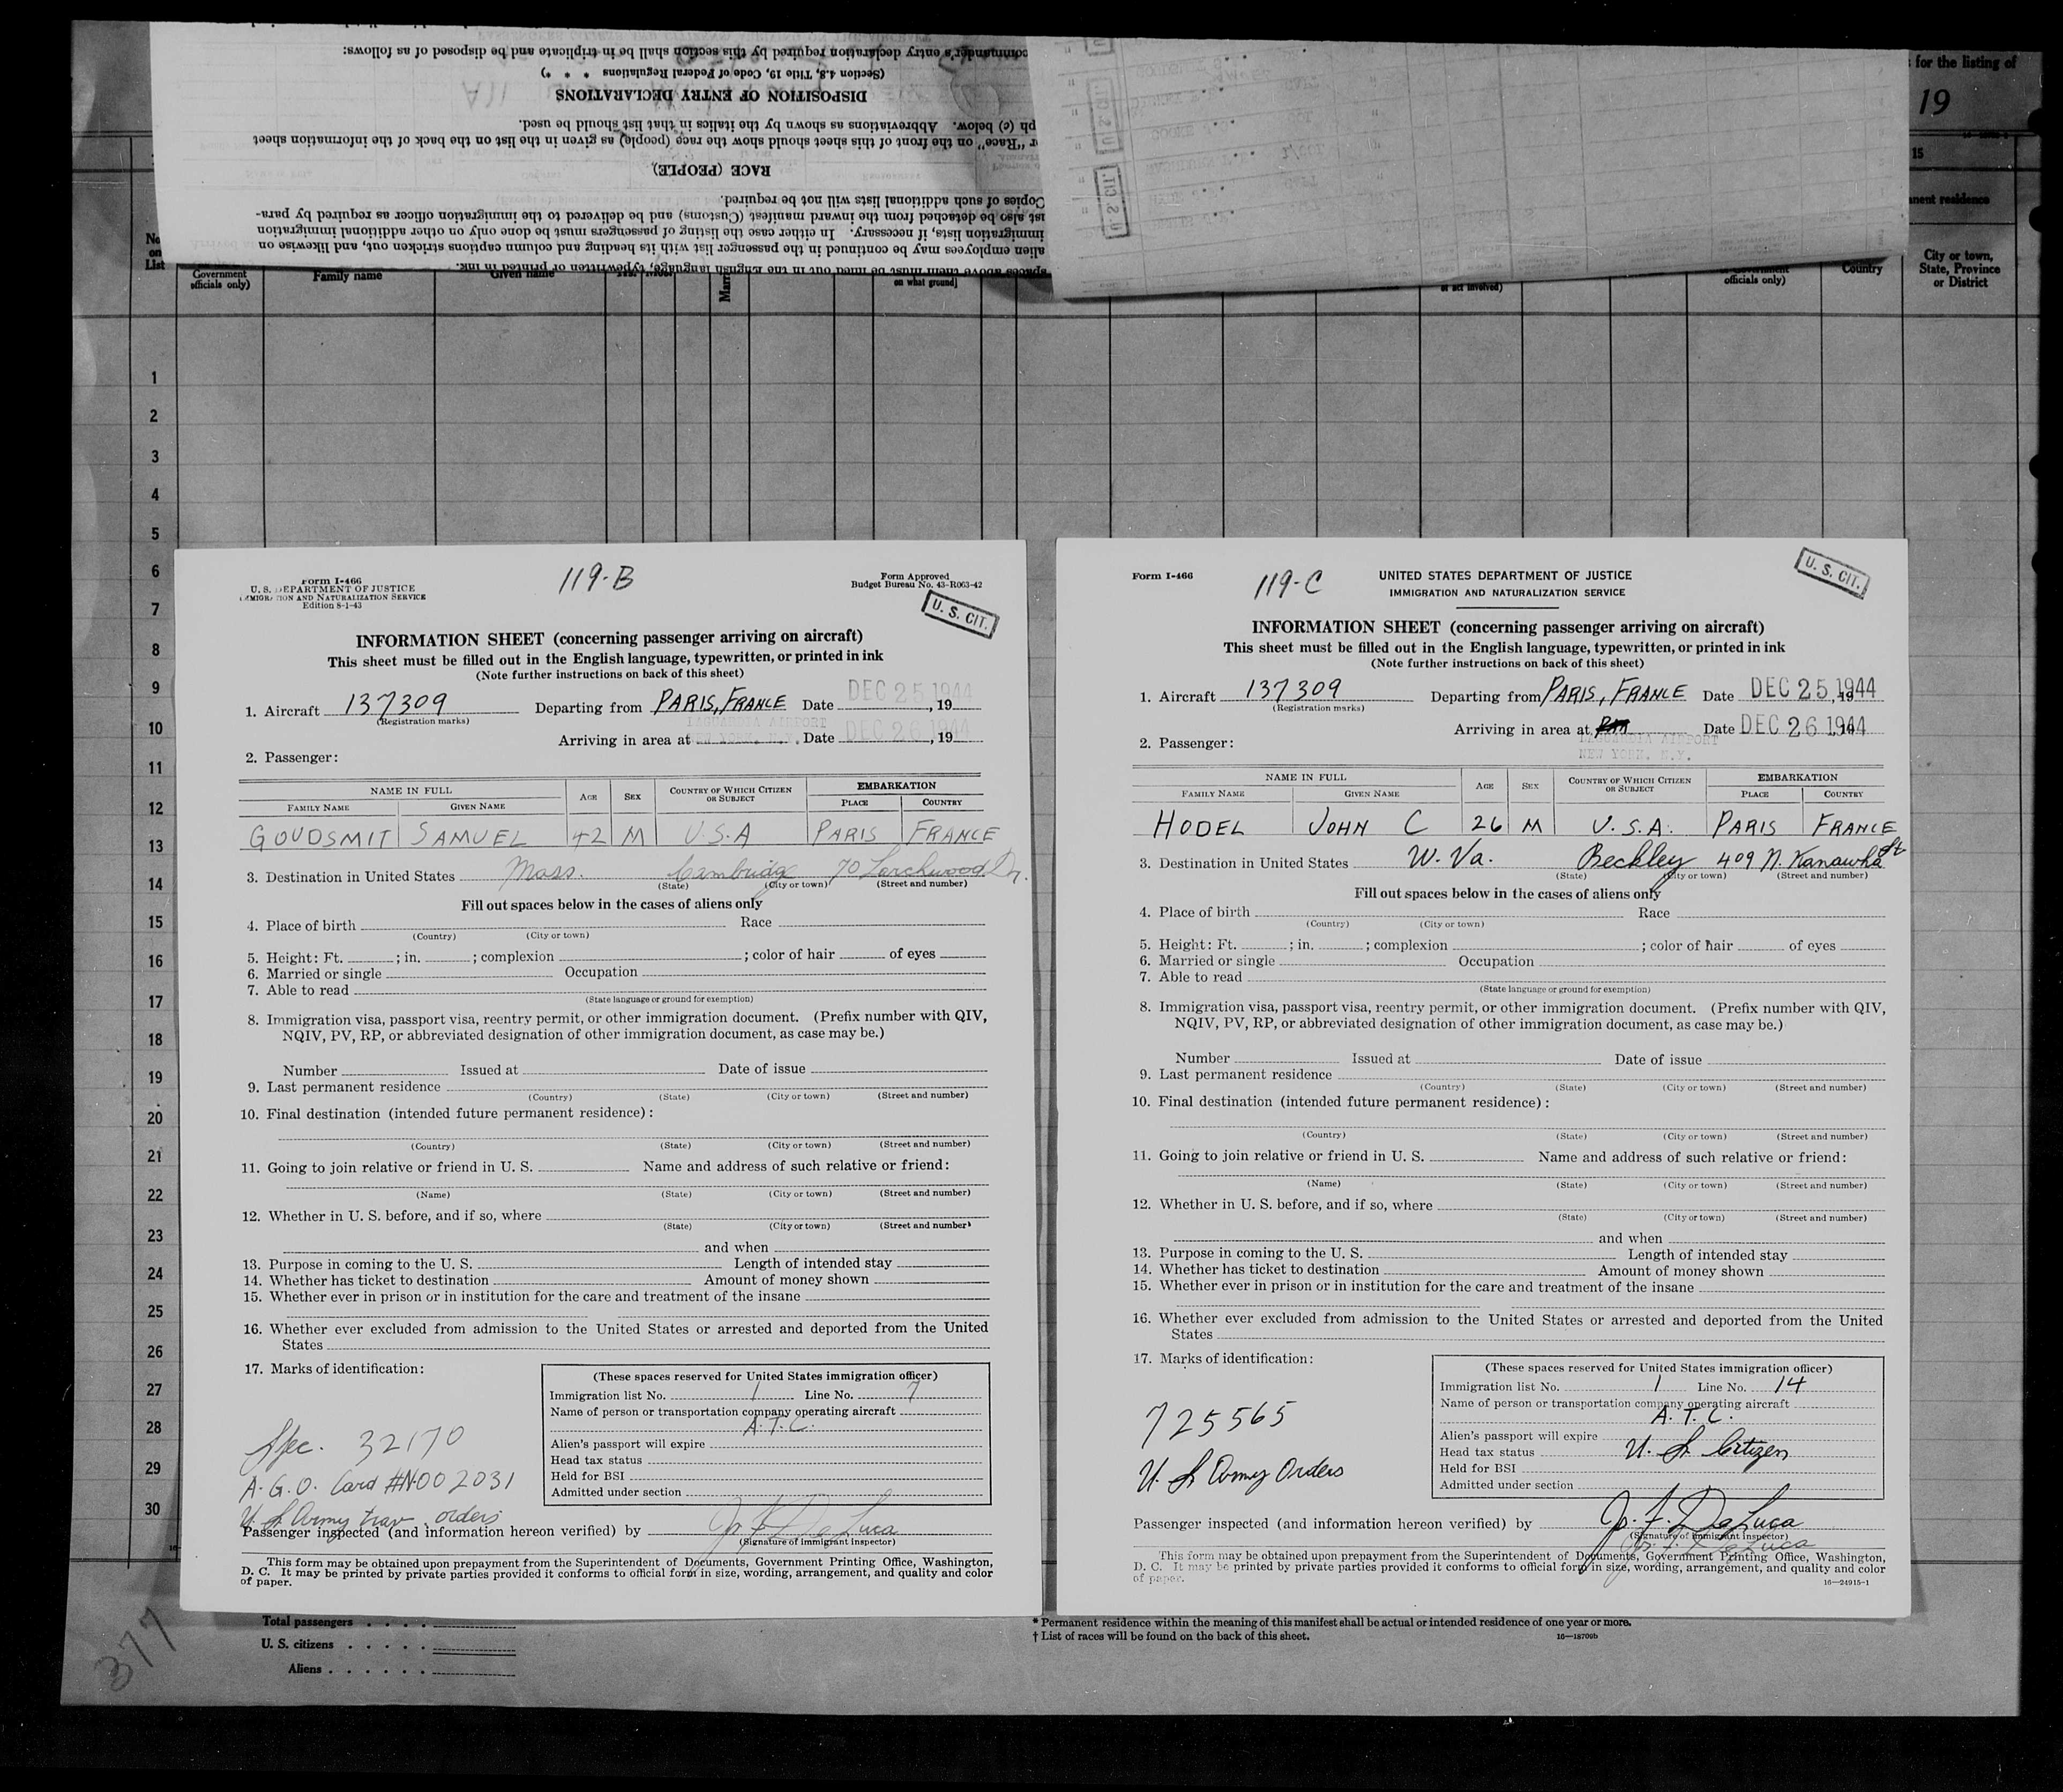 commander's entry declaration required by this section shall be in triplicate and be disposed of as follows:
(Section 4.8, Title 19, Code of Federal Regulations * * *)
DISPOSITION OF ENTRY DECLARATIONS
ph (c) below. Abbreviations as shown by the italics in that list should be used.
"Race" on the front of this sheet should show the race (people) as given in the list on the back of the information sheet
RACE (PEOPLE)
Copies of such additional lists will not be required.
ist also be detached from the inward manifest (Customs) and be delivered to the immigration officer as required by para-
immigration lists, if necessary. In either case the listing of passengers must be done only on other additional immigration
alien employees may be continued in the passenger list with its heading and column captions stricken out, and likewise on
spaces above them must be filled out in the English language, typewritten or printed in ink.
U. S. CIT.
for the listing of
19
15
nent residence
No. on List
Government officials only)
Family name
Given name
on what ground]
or act involved)
officials only)
Country
City or town, State, Province or District
1
2
3
4
5
6
7
8
9
10
11
12
13
14
15
16
17
18
19
20
21
22
23
24
25
26
27
28
29
30
Form I-466
U. S. DEPARTMENT OF JUSTICE
IMMIGRATION AND NATURALIZATION SERVICE
Edition 8-1-43
119-B
Form Approved
Budget Bureau No. 43-R063-42
U. S. CIT.
INFORMATION SHEET (concerning passenger arriving on aircraft)
This sheet must be filled out in the English language, typewritten, or printed in ink
(Note further instructions on back of this sheet)
1. Aircraft 137309 Departing from PARIS, FRANCE Date DEC 25 1944, 19
(Registration marks)
LAGUARDIA AIRPORT
Arriving in area at NEW YORK, N.Y. Date DEC 26 1944, 19
2. Passenger:
NAME IN FULL AGE SEX COUNTRY OF WHICH CITIZEN OR SUBJECT EMBARKATION
FAMILY NAME GIVEN NAME PLACE COUNTRY
GOUDSMIT SAMUEL 42 M U.S.A PARIS FRANCE
3. Destination in United States Mass. Cambridge 70 Larchwood Dr.
(State) (City or town) (Street and number)
Fill out spaces below in the cases of aliens only
4. Place of birth Race
(Country) (City or town)
5. Height: Ft. ; in. ; complexion ; color of hair of eyes
6. Married or single Occupation
7. Able to read
(State language or ground for exemption)
8. Immigration visa, passport visa, reentry permit, or other immigration document. (Prefix number with QIV,
NQIV, PV, RP, or abbreviated designation of other immigration document, as case may be.)
Number Issued at Date of issue
9. Last permanent residence
(Country) (State) (City or town) (Street and number)
10. Final destination (intended future permanent residence):
(Country) (State) (City or town) (Street and number)
11. Going to join relative or friend in U. S. Name and address of such relative or friend:
(Name) (State) (City or town) (Street and number)
12. Whether in U. S. before, and if so, where
(State) (City or town) (Street and number)
and when
13. Purpose in coming to the U. S. Length of intended stay
14. Whether has ticket to destination Amount of money shown
15. Whether ever in prison or in institution for the care and treatment of the insane
16. Whether ever excluded from admission to the United States or arrested and deported from the United
States
17. Marks of identification:
(These spaces reserved for United States immigration officer)
Immigration list No. 1 Line No. 7
Name of person or transportation company operating aircraft
A. T. C.
Alien's passport will expire
Head tax status
Held for BSI
Admitted under section
Spec. 32170
A.G.O. Card #N002031
U. S. Army trav. orders
Passenger inspected (and information hereon verified) by Jr. F. DeLuca
(Signature of immigrant inspector)
This form may be obtained upon prepayment from the Superintendent of Documents, Government Printing Office, Washington,
D. C. It may be printed by private parties provided it conforms to official form in size, wording, arrangement, and quality and color
of paper.
Form I-466
119-C
UNITED STATES DEPARTMENT OF JUSTICE
IMMIGRATION AND NATURALIZATION SERVICE
U. S. CIT.
INFORMATION SHEET (concerning passenger arriving on aircraft)
This sheet must be filled out in the English language, typewritten, or printed in ink
(Note further instructions on back of this sheet)
1. Aircraft 137309 Departing from PARIS, FRANCE Date DEC 25 1944, 19
(Registration marks)
Arriving in area at Date DEC 26 1944, 19
LAGUARDIA AIRPORT
NEW YORK, N.Y.
2. Passenger:
NAME IN FULL AGE SEX COUNTRY OF WHICH CITIZEN OR SUBJECT EMBARKATION
FAMILY NAME GIVEN NAME PLACE COUNTRY
HODEL JOHN C 26 M U.S.A. PARIS FRANCE
3. Destination in United States W. Va. Beckley 409 N. Kanawha St
(State) (City or town) (Street and number)
Fill out spaces below in the cases of aliens only
4. Place of birth Race
(Country) (City or town)
5. Height: Ft. ; in. ; complexion ; color of hair of eyes
6. Married or single Occupation
7. Able to read
(State language or ground for exemption)
8. Immigration visa, passport visa, reentry permit, or other immigration document. (Prefix number with QIV,
NQIV, PV, RP, or abbreviated designation of other immigration document, as case may be.)
Number Issued at Date of issue
9. Last permanent residence
(Country) (State) (City or town) (Street and number)
10. Final destination (intended future permanent residence):
(Country) (State) (City or town) (Street and number)
11. Going to join relative or friend in U. S. Name and address of such relative or friend:
(Name) (State) (City or town) (Street and number)
12. Whether in U. S. before, and if so, where
(State) (City or town) (Street and number)
and when
13. Purpose in coming to the U. S. Length of intended stay
14. Whether has ticket to destination Amount of money shown
15. Whether ever in prison or in institution for the care and treatment of the insane
16. Whether ever excluded from admission to the United States or arrested and deported from the United
States
17. Marks of identification:
(These spaces reserved for United States immigration officer)
Immigration list No. 1 Line No. 14
Name of person or transportation company operating aircraft
A. T. C.
Alien's passport will expire
Head tax status U. S. Citizen
Held for BSI
Admitted under section
725565
U. S. Army Orders
Passenger inspected (and information hereon verified) by Jr. F. DeLuca
(Signature of immigrant inspector)
This form may be obtained upon prepayment from the Superintendent of Documents, Government Printing Office, Washington,
D. C. It may be printed by private parties provided it conforms to official form in size, wording, arrangement, and quality and color
of paper.
16—24915-1
377
Total passengers
U. S. citizens
Aliens
* Permanent residence within the meaning of this manifest shall be actual or intended residence of one year or more.
† List of races will be found on the back of this sheet.
16—18709b